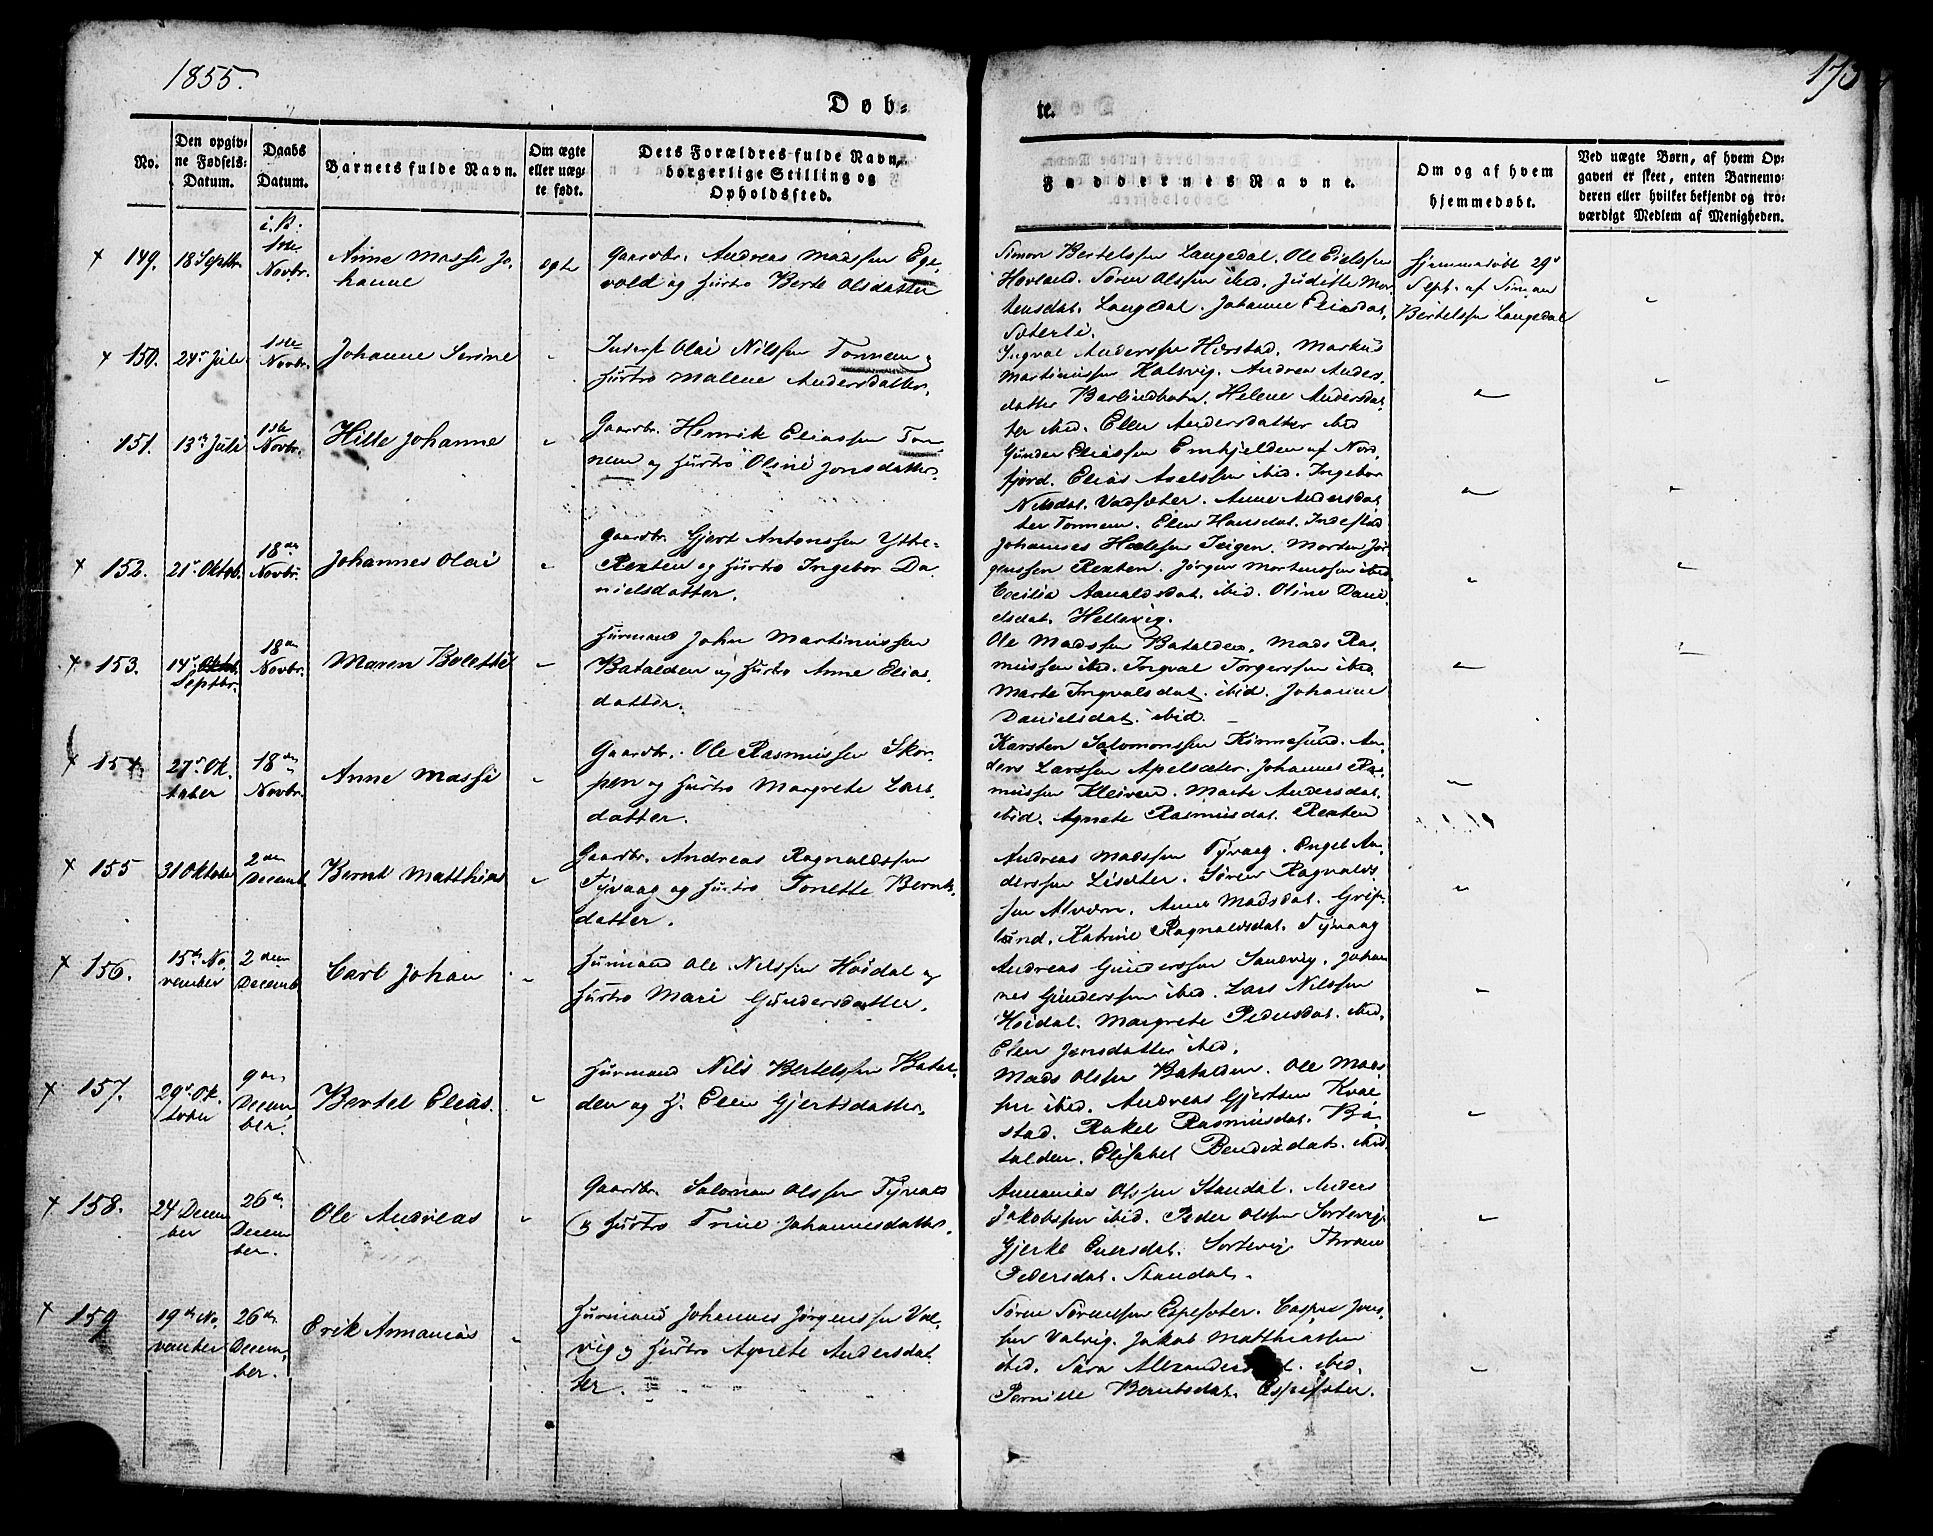 1855.
173
Døb-
te.
No.
Den opgiv-
ne Fødsels-
Datum.
Daabs
Datum.
Barnets fulde Navn.
Om ægte
eller uæg-
te født.
Dets Forældres fulde Navn,
borgerlige Stilling og
Opholdssted.
Faddernes Navne.
Om og af hvem
hjemmedøbt.
Ved uægte Børn, af hvem Op-
gaven er skeet, enten Barnemo-
deren eller hvilket bekjendt og tro-
værdigt Medlem af Menigheden.
149.
18 Septbr.
i. K:
1ste
Novbr.
Anne Massi Jo-
hanne
ægte
Gaardbr. Andreas Madssen Ege-
vold og Hustro Berte Olsdatter
Simon Bertelssen Langedal. Ole Eielssen
Hovland. Søren Olssen ibid. Judithe Mor-
tensdat. Langedal. Johanne Eliasdat.
Sæterli.
Hjemmedøbt 29de
Sept. af Simon
Bertelssen Langedal
150.
24de Juli
1ste
Novbr.
Johanne Serine
Inderst Olai Nilssen Tonnem og
Hustro Malene Andersdatter.
Ingval Anderssen Hæstad. Markus
Martinussen Kalsvig. Andrea Anders-
datter Barlindbotn. Helene Andersdat-
ter ibid. Ellen Andersdatter ibid
151.
13de Juli
1ste
Novbr.
Hille Johanne
Gaardbr. Henrik Eliassen Ton-
nem og Hustro Oline Jonsdatter.
Gunder Eliassen Emhjelden af Nord-
fjord. Elias Axelssen ibid. Ingebor
Nilsdat. Vadsæter. Anne Andersdat-
ter Tonnem. Elen Hansdat. Indrestad
152.
21de Oktob.
18de
Novbr.
Johannes Olai
Gaardbr. Gjert Antonssen Ytre-
Rexten og Hustro Ingebor Da-
nielsdatter.
Johannes Hælssen Teigen. Morten Jør-
genssen Rexten. Jørgen Mortenssen ibid
Cecilia Aanaldsdat. ibid. Oline Dani-
elsdat. Hellevig.
153.
14de
Septbr.
18de
Novbr.
Maren Bolette
Huusmand John Martinussen
Batalden og Hustro Anne Elias-
datter.
Ole Madssen Batalden. Mads Ras-
mussen ibid. Ingval Torgerssen ibid
Marte Ingvalsdat. ibid. Johanne
Danielsdat. ibid.
154
27de Ok-
tober
18de
Novbr.
Anne Massi
Gaardbr. Ole Rasmussen Skor-
pen og Hustro Margrete Lars-
datter.
Karsten Salomonssen Kinnesund. An-
ders Larssen Apelsæter. Johannes Ras-
mussen Kleiven. Marte Andersdat.
ibid. Agnete Rasmusdat. Rexten
155
31 Oktober
2den
Decemb.
Bernt Matthias
Gaardbr. Andreas Ragnaldssen
Tyvaag og Hustro Tonette Bernts-
datter.
Andreas Madssen Tyvaag. Engel An-
derssen Lisæter. Søren Ragnalds-
sen Alværn. Anne Madsdat. Grøf-
lund. Katrine Ragnaldsdat. Tyvaag
156.
15de No-
vember
2den
Decemb.
Carl Johan
Huusmand Ole Nilssen Høidal og
Hustro Mari Gundersdatter.
Andreas Gunderssen Sandvig. Johan-
nes Gunderssen ibid. Lars Nilssen
Høidal. Margrete Pedersdat. ibid.
Elen Jonsdatter ibid.
157.
29de Ok-
tober
9de
Decem-
ber.
Bertel Elias.
Huusmand Nils Bertelssen Batal-
den og H. Elen Gjertsdatter.
Mads Olssen Batalden. Ole Mads-
sen ibid. Andreas Gjertsen Kval-
stad. Rakel Rasmusdat. Ba-
talden. Elisabet Bendixdat. ibid
158.
24 Decem-
ber
26de
Decem-
ber.
Ole Andreas
Gaardbr. Salomon Olssen Tyvold
og Hustro Trine Johannesdatter.
Annanias Olssen Standal. Anders
Jakobssen ibid. Peder Olssen Sortevig.
Gjerke Eversdat. Sortevig. Throne
Pedersdat. Standal.
159
19de No-
vember
26de
Decem-
ber.
Erik Annanias
Huusmand Johannes Jørgenssen Val-
vig og Hustro Agnete Andersdat-
ter.
Søren Sørenssen Espesæter. Casper Jons-
sen Valvig. Jakob Matthiassen
ibid. Sara Alexandersdat. ibid.
Pernille Berntsdat. Espesæter.